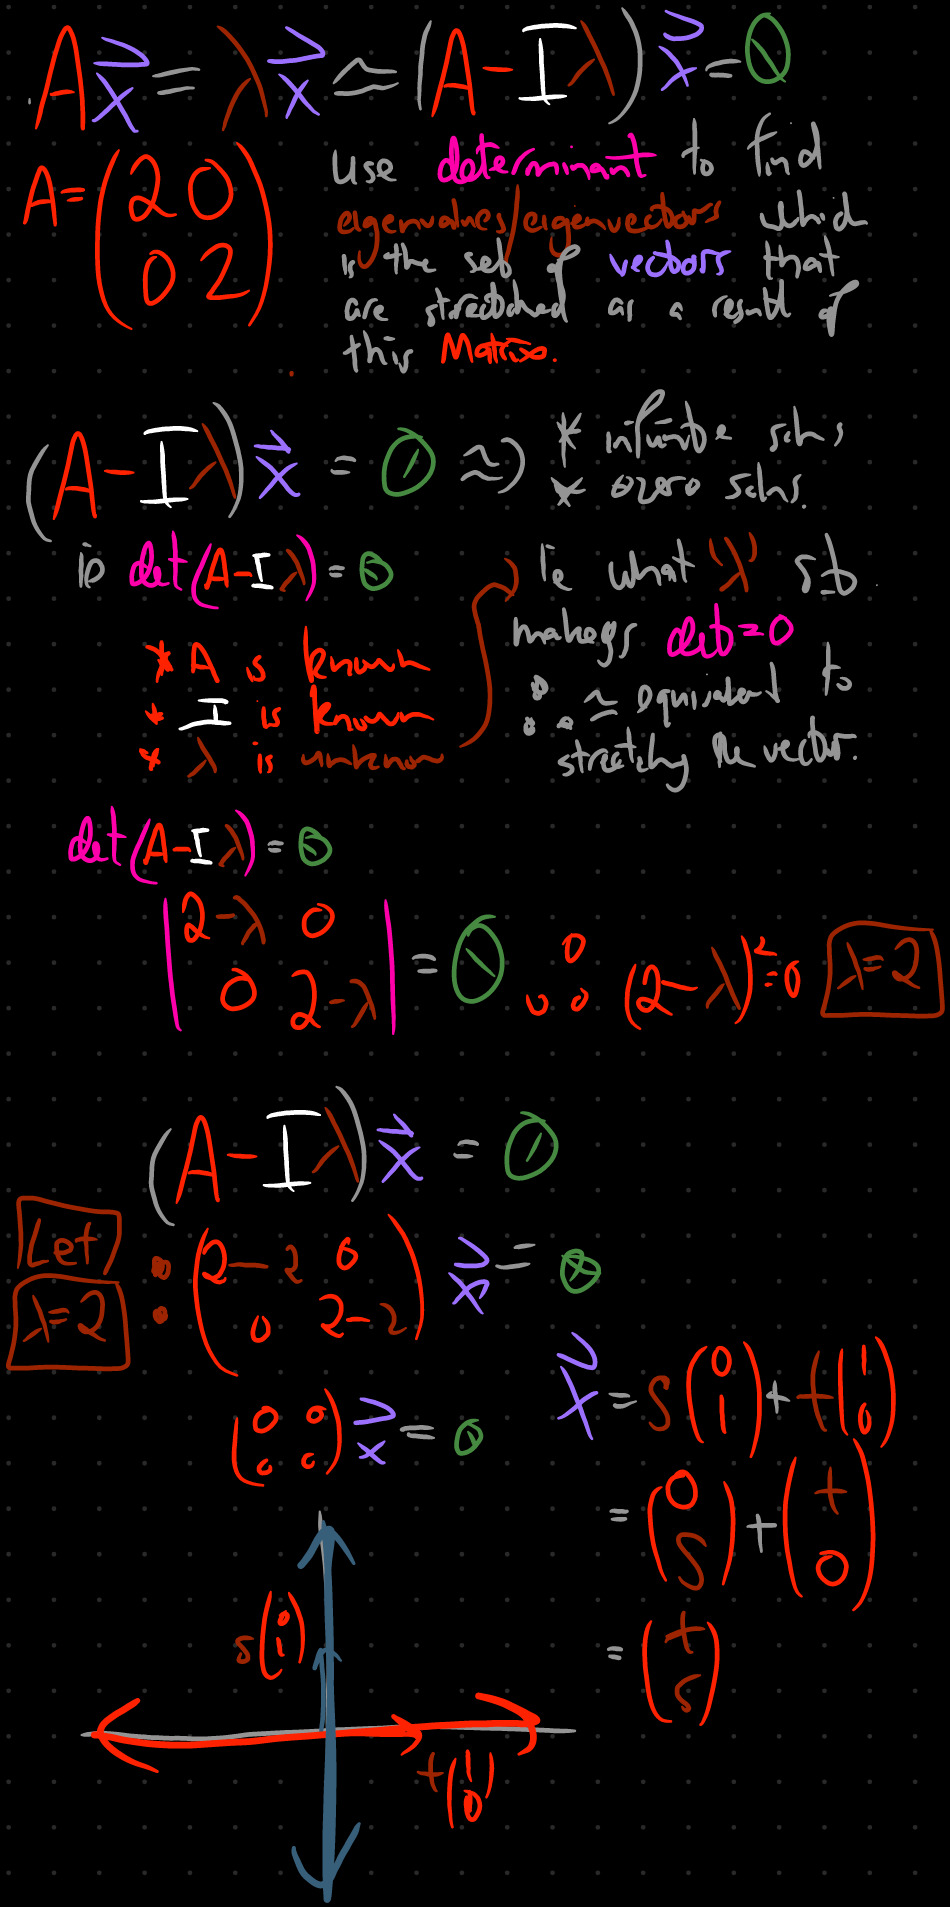 Ax⃗ = λx⃗ ≃ (A - Iλ)x⃗ = 0
A = (2 0
0 2)
use determinant to find
eigenvalues/eigenvectors which
is the set of vectors that
are stretched as a result of
this Matrix.
(A - Iλ)x⃗ = 0 ≃) * infinite solns
* zero solns.
ie det(A - Iλ) = 0
ie what 'λ' st
makes det = 0
* A is known
* I is known
* λ is unknown
∴ ≃ equivalent to
stretching the vector.
det(A - Iλ) = 0
|2-λ 0
0 2-λ| = 0 ∴ (2-λ)² = 0 λ=2
(A - Iλ)x⃗ = 0
Let
λ=2
: (2-2 0
0 2-2) x⃗ = 0
(0 0
0 0) x⃗ = 0
x⃗ = s(0 1) + t(1 0)
= (0 s) + (t 0)
= (t s)
s(0 1)
t(1 0)